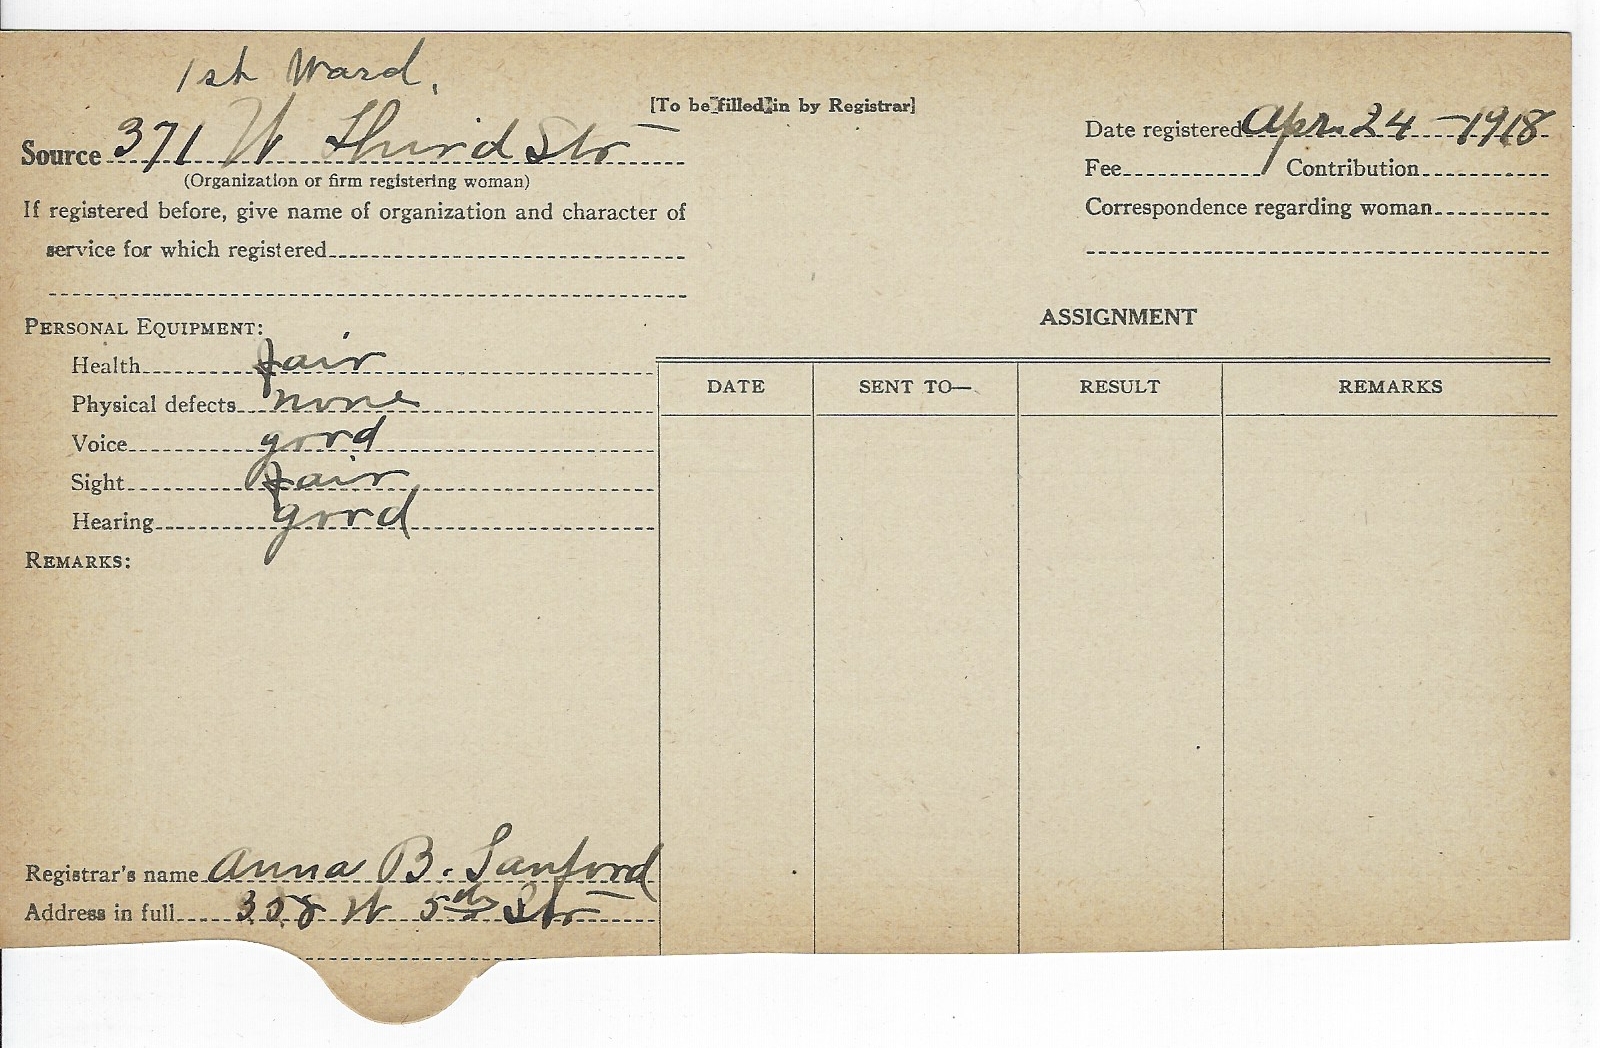 1st Ward.
[To be filled in by Registrar]
Source 371 W Third Str
(Organization or firm registering woman)
If registered before, give name of organization and character of
service for which registered
Date registered Apr. 24 - 1918
Fee Contribution
Correspondence regarding woman
PERSONAL EQUIPMENT:
Health fair
Physical defects none
Voice good
Sight fair
Hearing good
REMARKS:
ASSIGNMENT
DATE SENT TO— RESULT REMARKS
Registrar's name Anna B. Sanford
Address in full 358 W 5th Str